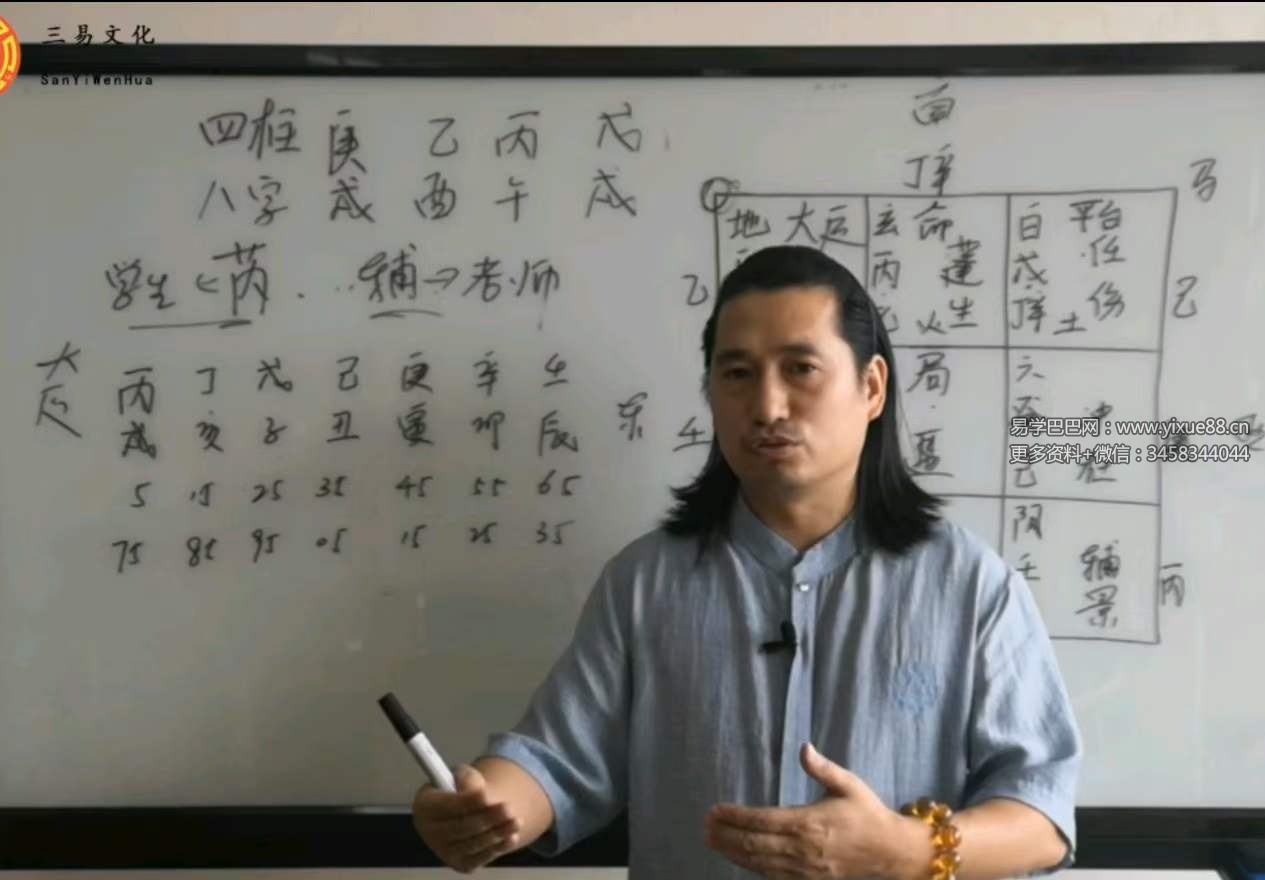 三易文化
SanYiWenHua
四柱 庚 乙 丙 戊
八字 戌 酉 午 戌
学生←芮...辅→老师
大运
丙 丁 戊 己 庚 辛 壬
戌 亥 子 丑 寅 卯 辰
5 15 25 35 45 55 65
75 85 95 05 15 25 35
丁辛
马
地 大运
玄 命
丙 蓬
火生
白 平台
戊 任
辛土 伤
乙
己
东
壬
局
六
易学巴巴网：www.yixue88.cn
更多资料+微信：3458344044
阴
壬 辅
景
丙